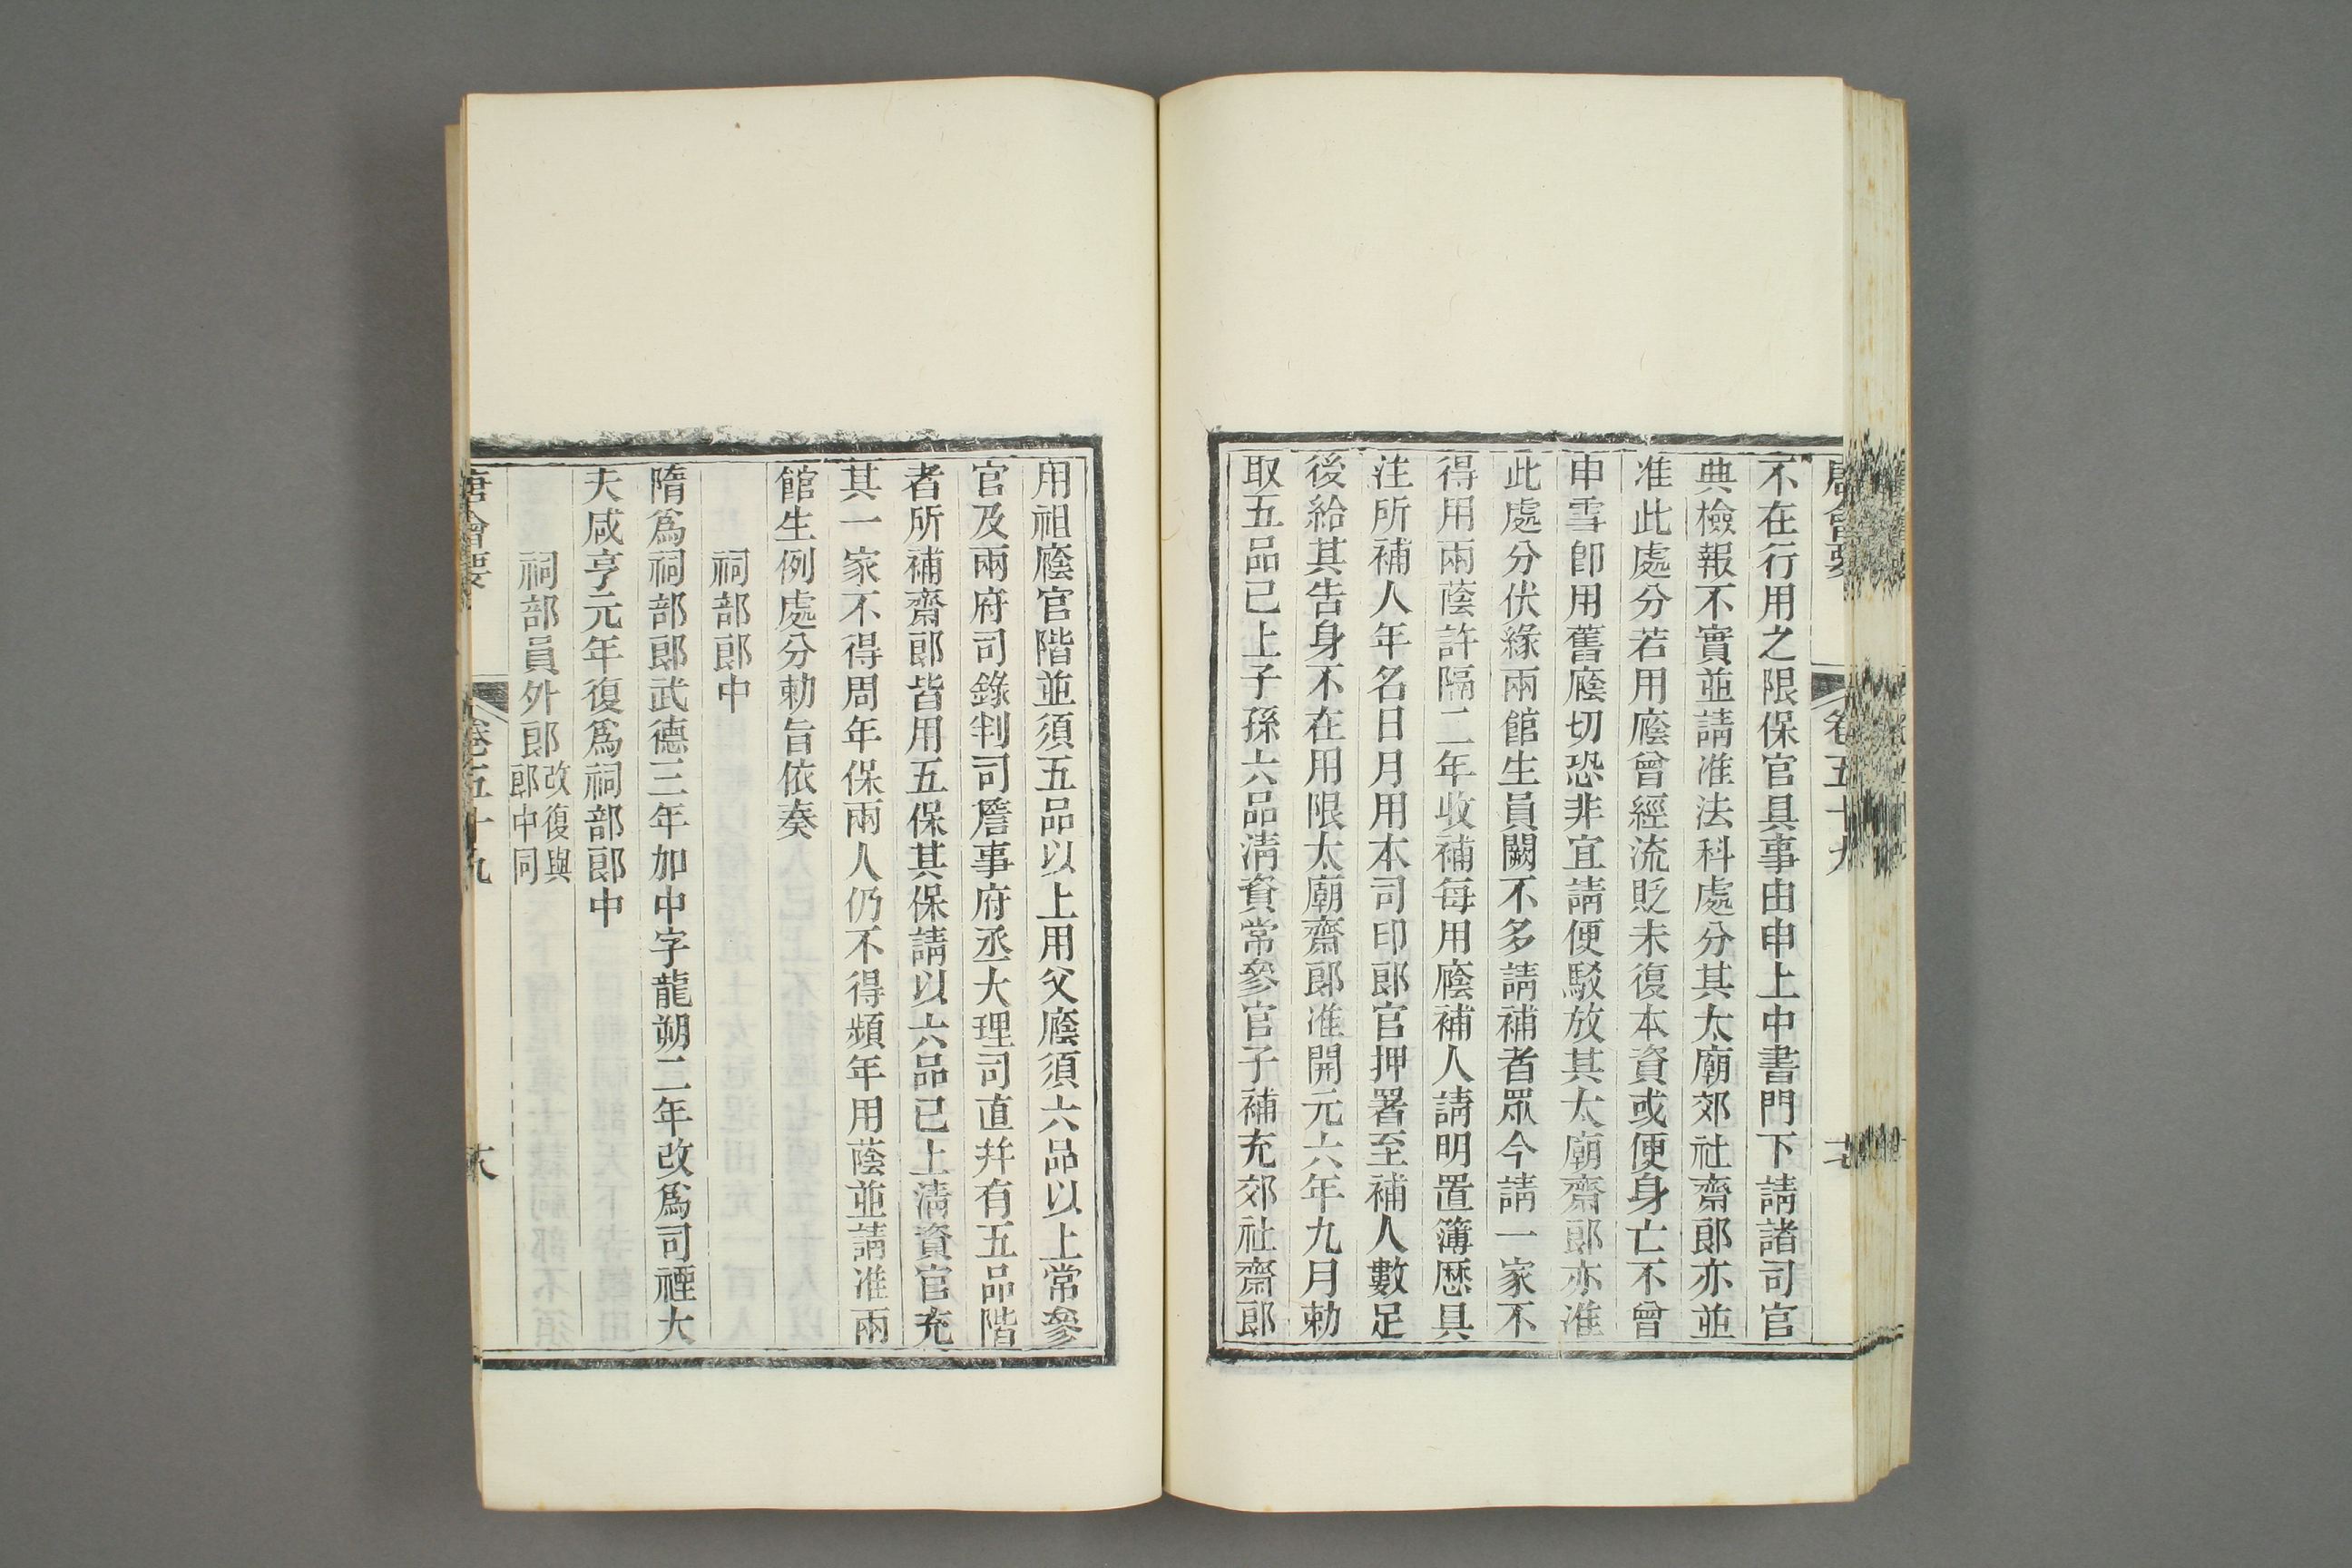 唐會要 卷五十九
不在行用之限保官具事由申上中書門下請諸司官
典檢報不實並請准法科處分其太廟郊社齋郎亦並
准此處分若用廕曾經流貶未復本資或便身亡不曾
申雪卽用舊廕切恐非宜請便駁放其太廟齋郎亦准
此處分伏緣兩館生員闕不多請補者眾今請一家不
得用兩蔭許隔二年收補每用廕補人請明置簿歷具
注所補人年名日月用本司印郎官押署至補人數足
後給其告身不在用限太廟齋郎准開元六年九月勅
取五品已上子孫六品清資常參官子補充郊社齋郎
用祖廕官階並須五品以上用父廕須六品以上常參
官及兩府司錄判司詹事府丞大理司直幷有五品階
者所補齋郎皆用五保其保請以六品已上清資官充
其一家不得周年保兩人仍不得頻年用蔭並請准兩
館生例處分勅旨依奏
祠部郎中
隋爲祠部郎武德三年加中字龍朔二年改爲司禋大
夫咸亨元年復爲祠部郎中
祠部員外郎 改復與郎中同
唐會要 卷五十九